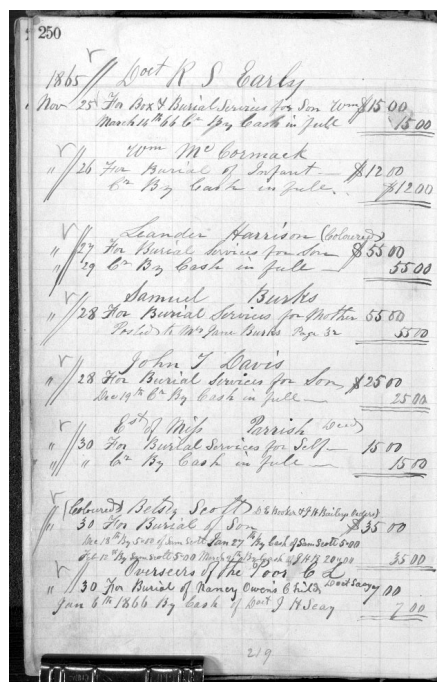 250
1865 Doct R S Early
Nov 25 For Box & Burial Services for Son Wm $15 00
March 14th 66 Cr By Cash in full 15 00
Wm McCormack
" 26 For Burial of Infant $12 00
Cr By Cash in full $12 00
Leander Harrison (Coloured)
" 27 For Burial Services for Son $55 00
" 29 Cr By Cash in full 55 00
Samuel Burks
" 28 For Burial Services for Mother 55 00
Posted to Mrs Jane Burks Page 32 55 00
John T Davis
" 28 For Burial Services for Son $25 00
Dec 19th Cr By Cash in full 25 00
Est of Miss Parrish Decd
" 30 For Burial Services for Self 15 00
" " Cr By Cash in full 15 00
(Coloured) Betsy Scott & J H Baileys
" 30 For Burial of Son $35 00
Dec 18th By 5.00 of Sam Scott Jan 27th By Cash of Sam Scott 5.00
Feb 12th By Sam Scott 5.00 By Cash of J H B 20.00 35 00
Overseers of the Poor C L
" 30 For Burial of Nancy Owens Child Doct Seay 7 00
Jan 6th 1866 By Cash of Doct J H Seay 7 00
219